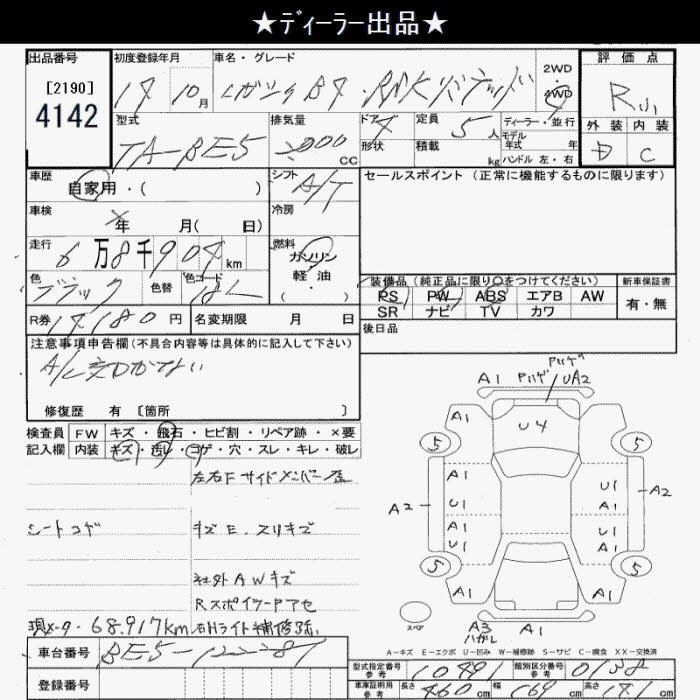 ★ディーラー出品★
出品番号
[2190]
4142
初度登録年月
17 10月
車名・グレード
レガシィB4・RSKリミテッド
2WD
・
4WD
評価点
R
外装 内装
D C
型式
TA-BE5
排気量
2000
CC
ドア 4
形状
定員 5人
積載 kg
ディーラー・並行
モデル
年式 年
ハンドル 左・右
車歴
自家用・( )
シフト
A/T
セールスポイント(正常に機能するものに限ります)
車検
年 月( 日)
冷房
走行
6万8千904km
燃料
ガソリン
軽・油
( ・ )
色
ブラック
色替
色コード
R券
17180円
名変期限 月 日
装備品(純正品に限り○をつけてください)
PS PW ABS エアB AW
SR ナビ TV カワ
新車保証書
有・無
後日品
注意事項申告欄(不具合内容等は具体的に記入して下さい)
A/C
修復歴 有 [箇所 ]
検査員
記入欄
FW キズ・飛石・ヒビ割・リペア跡・×要
内装 キズ・汚レ・コゲ・穴・スレ・キレ・破レ
左右Fサイドメンバー歪
シートコゲ
キズE.スリキズ
社外AWキズ
Rスポイラーアセ
現メータ・68.917km
右Hライト補修跡
車台番号
BE5-
登録番号
A1 UA2
A1 U4 A1
5 5
A1 A1
A2 U1 U1 A2
A1 U1
U1 A1
5 5
A1 A1
スペア
A3 A1
ハガレ
A-キズ E-エクボ U-凹み W-補修跡 S-サビ C-腐食 XX-交換済
型式指定番号
参考
10491
類別区分番号
参考
0138
車庫証明用
参考
長さ 460cm
幅 169cm
高さ 141cm